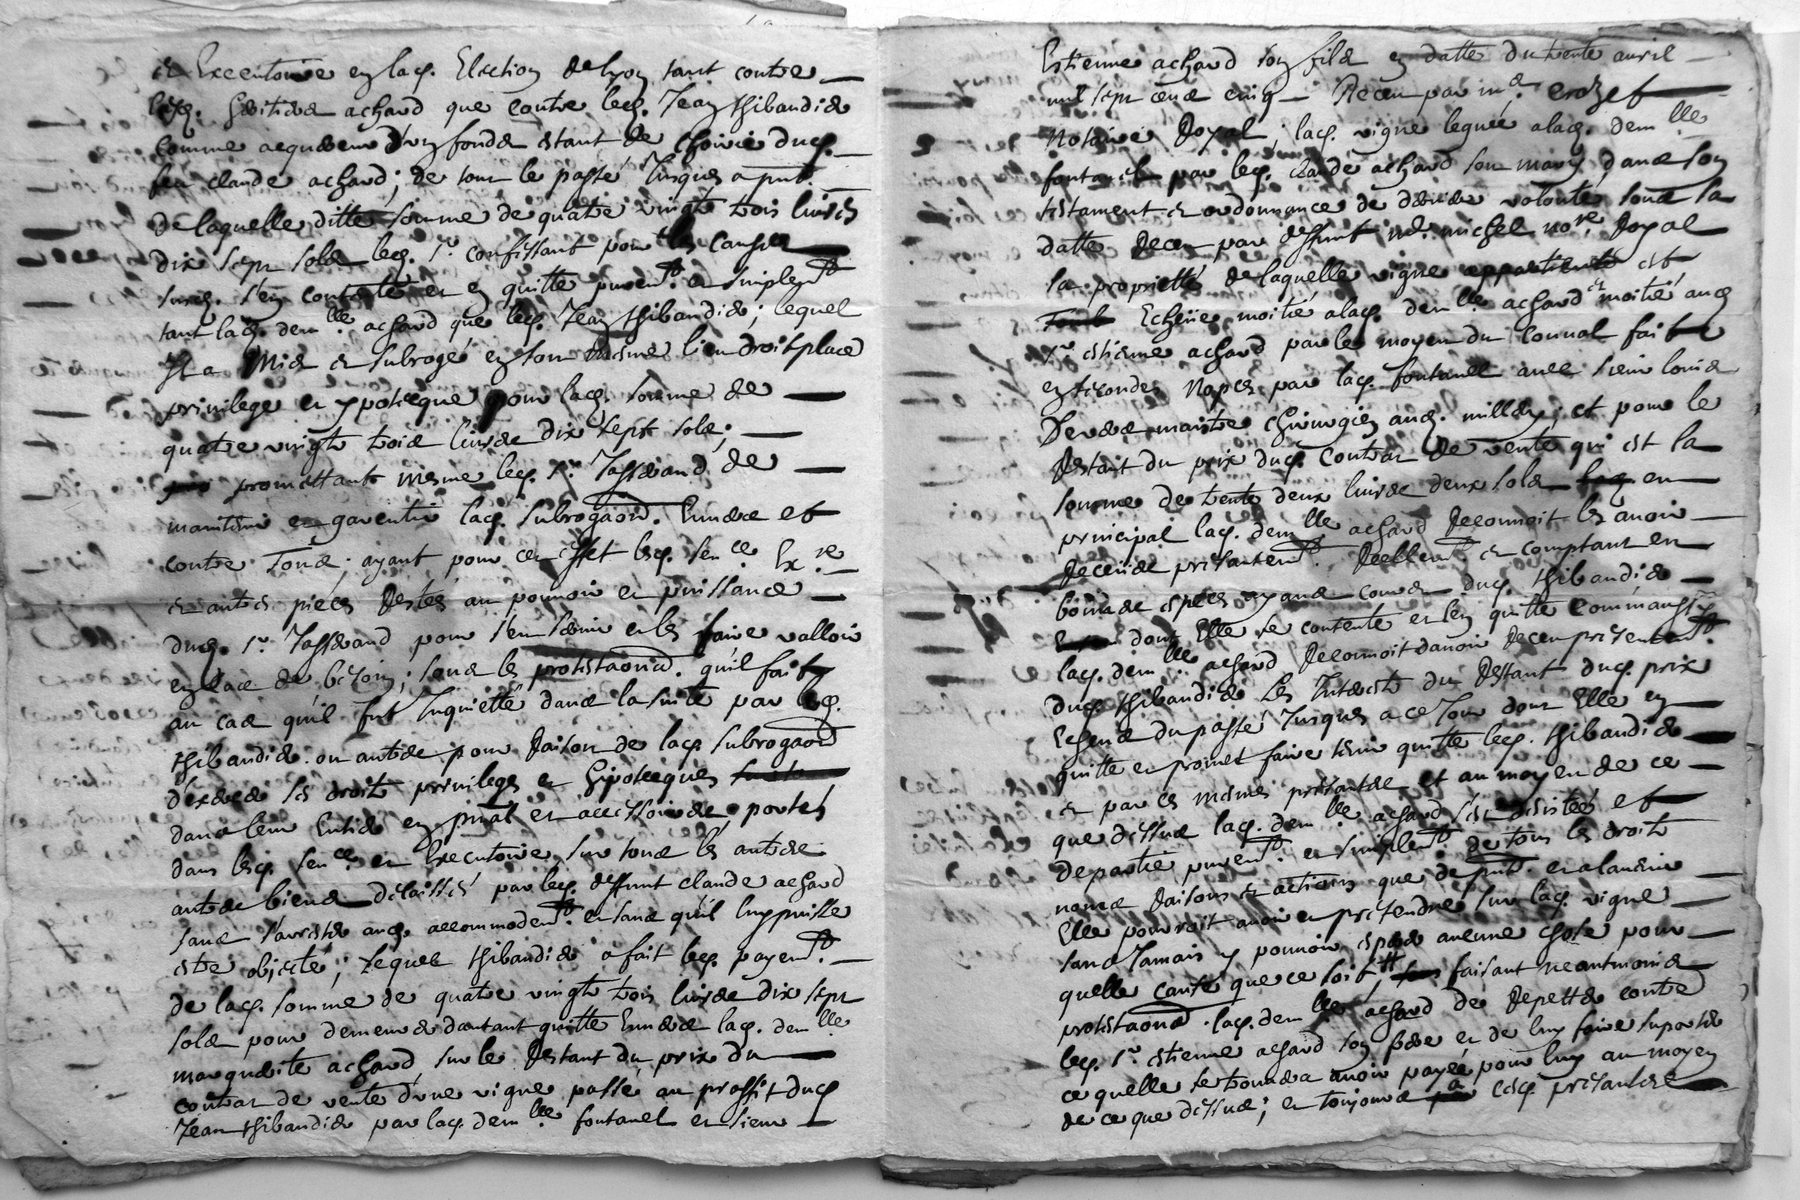 et Executoire en lad. Election de lyon tant contre
lesd. heritiers achard que contre led. Jean thibaudier
comme acquereur d'un fonds estant de choirie dud.
feu claude achard; de tout le passé Jusques a pnt.
de laquelle ditte somme de quatre vingts trois livres
dix sept sols led. sr. confessant pour les causes
susd. s'en contente et en quitte purem.t et simplem.t
tant lad. dem.lle achard que led. Jean thibaudier; lequel
Il a Mis et subrogé en son mesme lieu droit place
privilege et ypoteque pour lad. somme de
quatre vingts trois livres dix sept sols;
promettant mesme led. sr. Jasserand de
maintenir et garentir lad. subrogaôn. Envers et
contre Tous; ayant pour cet effet lesd. sen.ce Ex.re
et autres pieces Restés au pouvoir et puissance
dud. sr. Jasserand pour s'en servir et les faire valloir
en cas de besoin; sous les protestaôns. qu'il fait
au cas qu'il fut Inquietté dans la suitte par led.
thibaudier ou autre pour Raison de lad. subrogaôn
d'exercer ses droits privileges et hipoteques
dans leur Entier en p̃pal et accessoires, portés
dans lesd. sen.ce et Executoire, sur tous les autres
autres biens délaissés par led. deffunt claude achard
sans s'arrester aud. accommodem.t et sans qu'il luy puisse
estre objecté; Lequel thibaudier a fait led. payem.t
de lad. somme de quatre vingts trois livres dix sept
sols pour demeurer d'autant quitte Envers lad. dem.lle
marguerite achard, sur le Restant du prix du
contrat de vente d'une vigne passé au proffit dud.
Jean thibaudier par lad. dem.lle fontanel et sieur
Estienne achard son fils en datte du trente avril
mil sept cens cinq Receu par m.e crozet
Notaire Royal; lad. vigne leguée a lad. dem.lle
fontanel par led. claude achard son mary, dans son
testament et ordonnance de derniere volonté sous sa
datte Receu par deffunt m.e michel no.re Royal
la proprietté de laquelle vigne est
Echeüe moitié a lad. dem.lle achard et moitié aud.
sr. estienne achard par le moyen du convol fait
en secondes Nopces par lad. fontanel avec sieur louis
Dervers maistre chirurgien aud. millery; et pour le
Restant du prix dud. contrat de vente qui est la
somme de trente deux livres deux sols en
principal lad. dem.lle achard Reconnoit les avoir
Receües presantem.t Réellem.t et comptant en
bonnes especes ayans cours dud. thibaudier
dont Elle se contente et l'en quitte comm'aussy
lad. dem.lle achard Reconnoit d'avoir Receu presentem.t
dud. thibaudier Les Interests du Restant dud. prix
Echeus du passé Jusques a ce Jour dont Elle en
quitte et promet faire tenir quitte led. thibaudier
et par ces mesmes presantes et au moyen de ce
que dessus lad. dem.lle achard s'est desistée et
departie purem.t et simplem.t de tous les droits
noms Raisons et actions que de pnt. et a l'avenir
Elle pourroit avoir et prétendre sur lad. vigne
sans Jamais y pouvoir esperer aucune chose pour
quelle cause que ce soit, faisant neantmoins
protestaôns. lad. dem.lle achard de Repetter contre
led. sr. estienne achard son frere et de luy faire suporter
ce quelle se trouvera avoir payée pour luy au moyen
de ce que dessus; et toujours a cesd. presantes